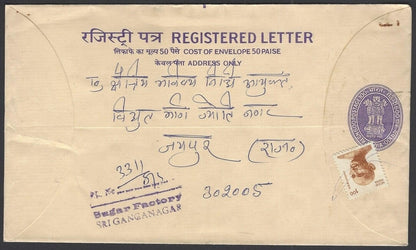 रजिस्ट्री पत्र REGISTERED LETTER
लिफाफे का मूल्य 50 पैसे COST OF ENVELOPE 50 PAISE
केवल पता ADDRESS ONLY
श्री
क्षेत्रीय भविष्य निधि आयुक्त
विद्युत मार्ग ज्योति नगर
जयपुर (राज०)
302005
3311
Sugar Factory
SRI GANGANAGAR
100